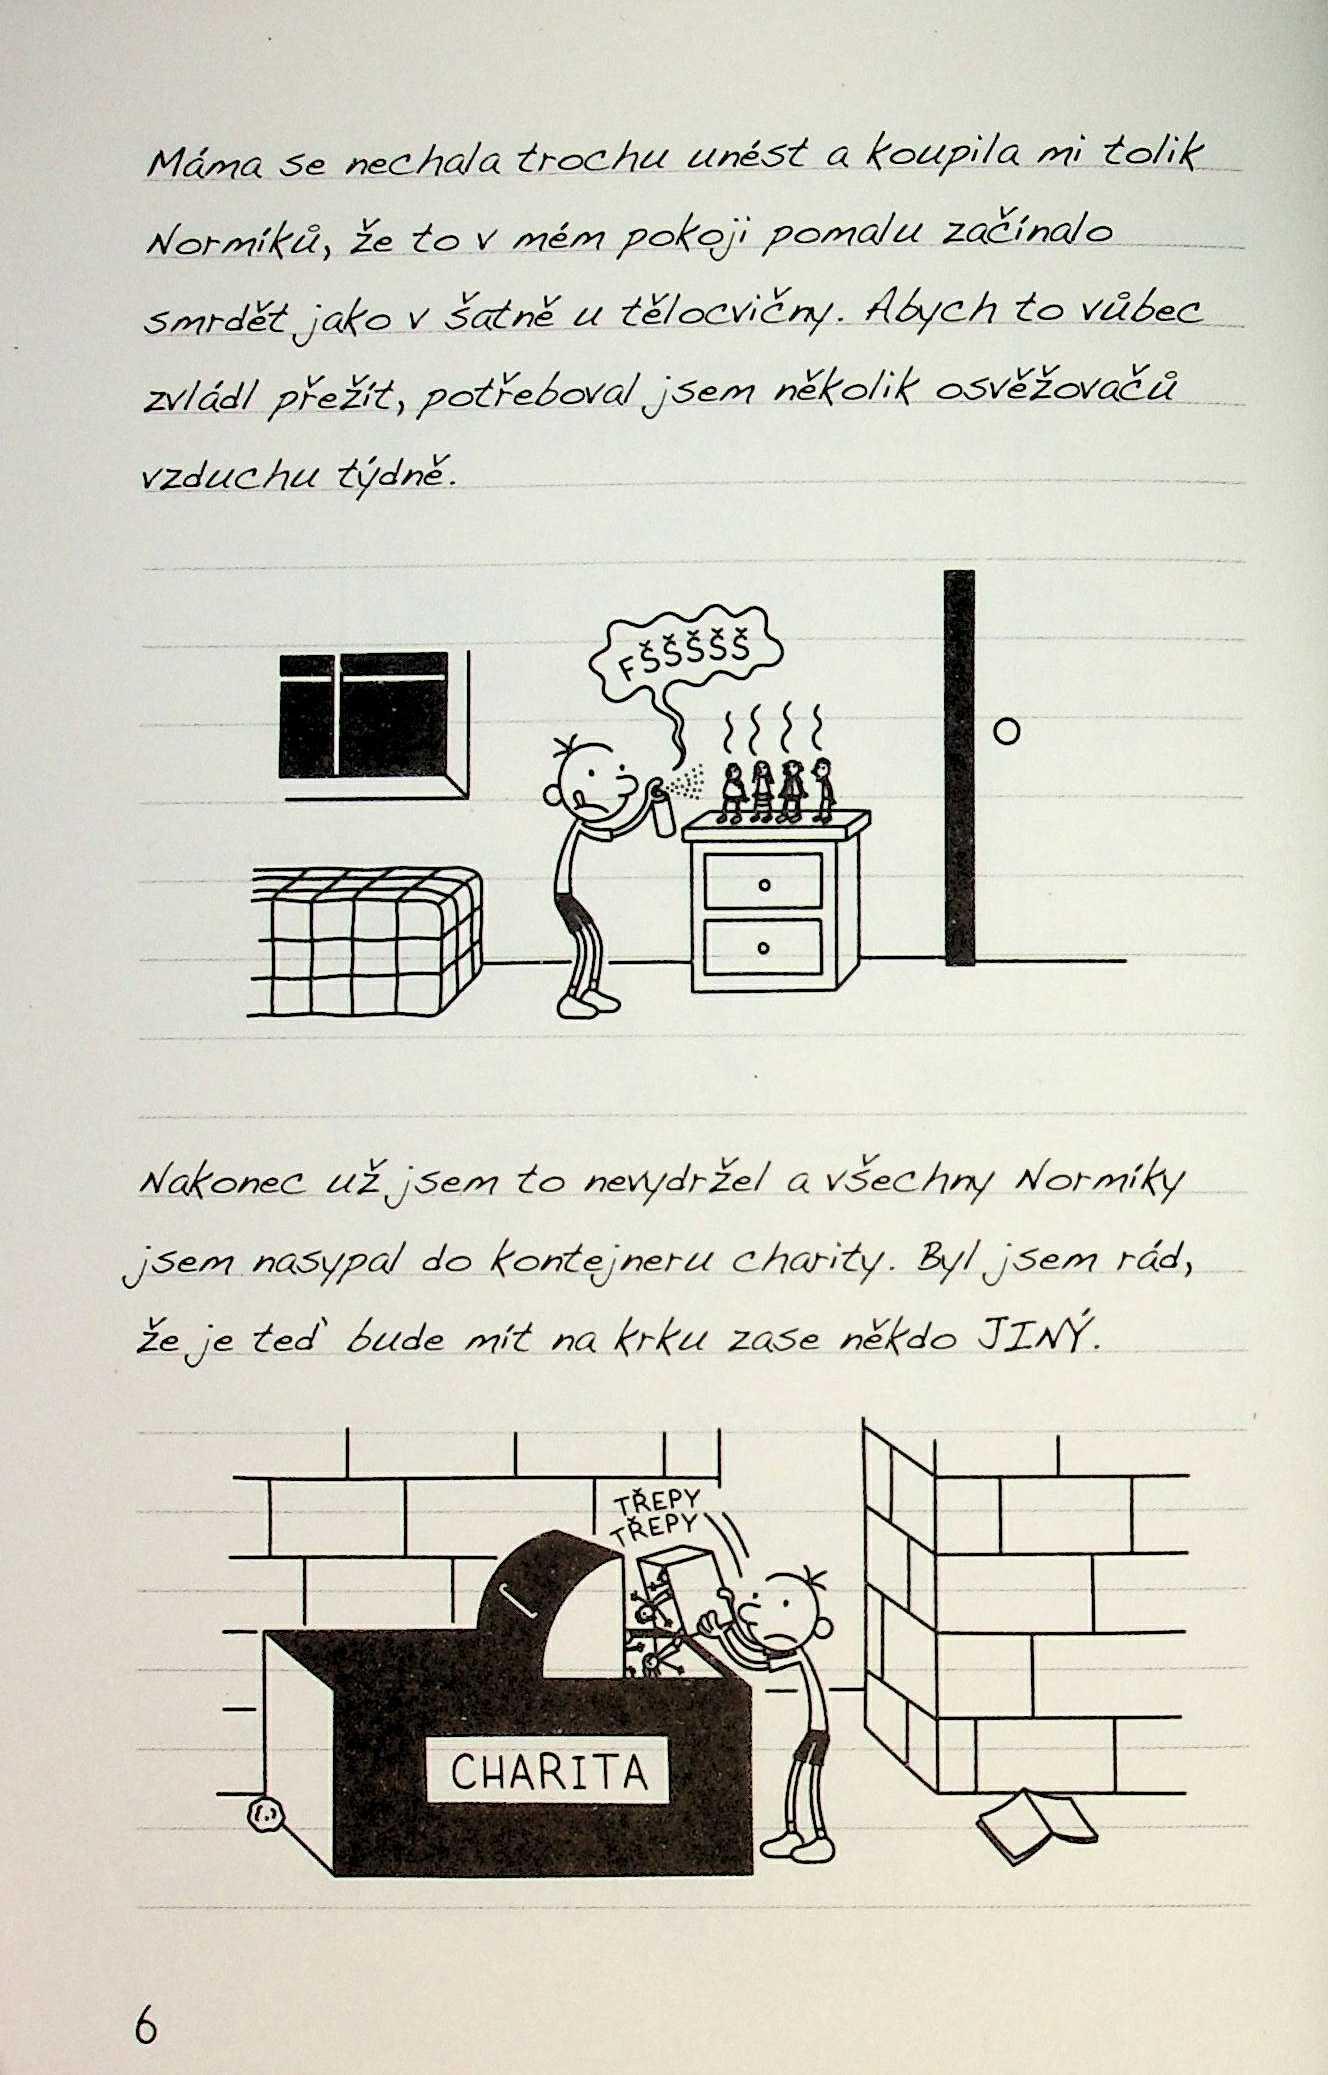 Máma se nechala trochu unést a koupila mi tolik
Normíků, že to v mém pokoji pomalu začínalo
smrdět jako v šatně u tělocvičny. Abych to vůbec
zvládl přežít, potřeboval jsem několik osvěžovačů
vzduchu týdně.
FŠŠŠŠŠ
Nakonec už jsem to nevydržel a všechny Normíky
jsem nasypal do kontejneru charity. Byl jsem rád,
že je teď bude mít na krku zase někdo JINÝ.
TŘEPY
TŘEPY
CHARITA
6